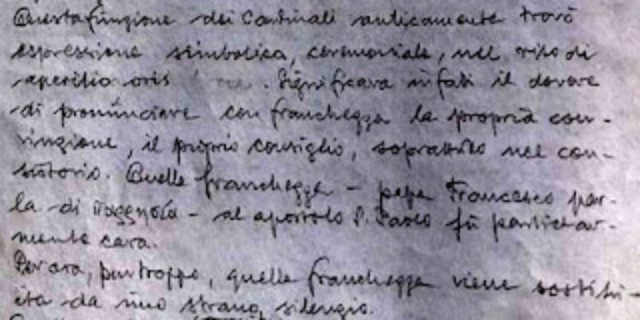 Questa funzione dei Cardinali anticamente trovò
espressione simbolica, ceremoniale, nel rito di
aperitio oris. Significava infatti il dovere
di pronunciare con franchezza la propria con-
vinzione, il proprio consiglio, soprattutto nel con-
cistoro. Quella franchezza – papa Francesco par-
la di – al apostolo S. Paolo fu particolar-
mente cara.
Per ora, purtroppo, quella franchezza viene sostitu-
ita da uno strano silenzio.